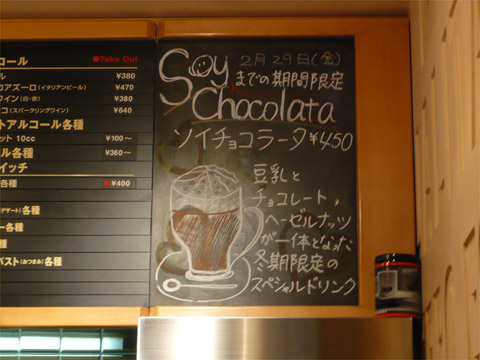 コール
●Take Out
ル ¥380
コアズーロ(イタリアンビール) ¥470
ワイン(白・赤) ¥380
コ(スパークリングワイン) ¥640
トアルコール各種
ット 10cc ¥100～
ル各種 ¥360～
イッチ
各種 ●¥400
デザート)各種
ー各種
種
パスト(おつまみ)各種
Soy
Chocolata
2月29日(金)
までの期間限定
ソイチョコラータ ¥450
豆乳と
チョコレート,
ヘーゼルナッツ
が一体となった
冬期限定の
スペシャルドリンク